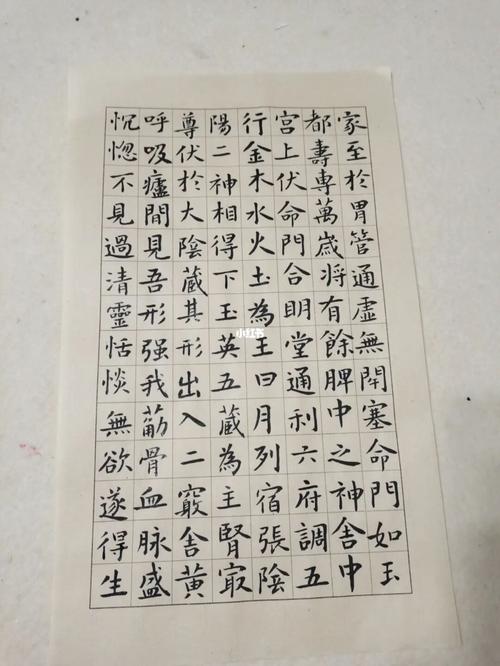 家至於胃管通虛無閉塞命門如玉
都壽專萬歲將有餘脾中之神舍中
宮上伏命門合明堂通利六府調五
行金木水火土為王日月列宿張陰
陽二神相得下玉英五藏為主腎㝡
尊伏於大陰藏其形出入二竅舍黃
呼吸廬間見吾形强我筋骨血脉盛
怳惚不見過清靈恬惔無欲遂得生
小红书